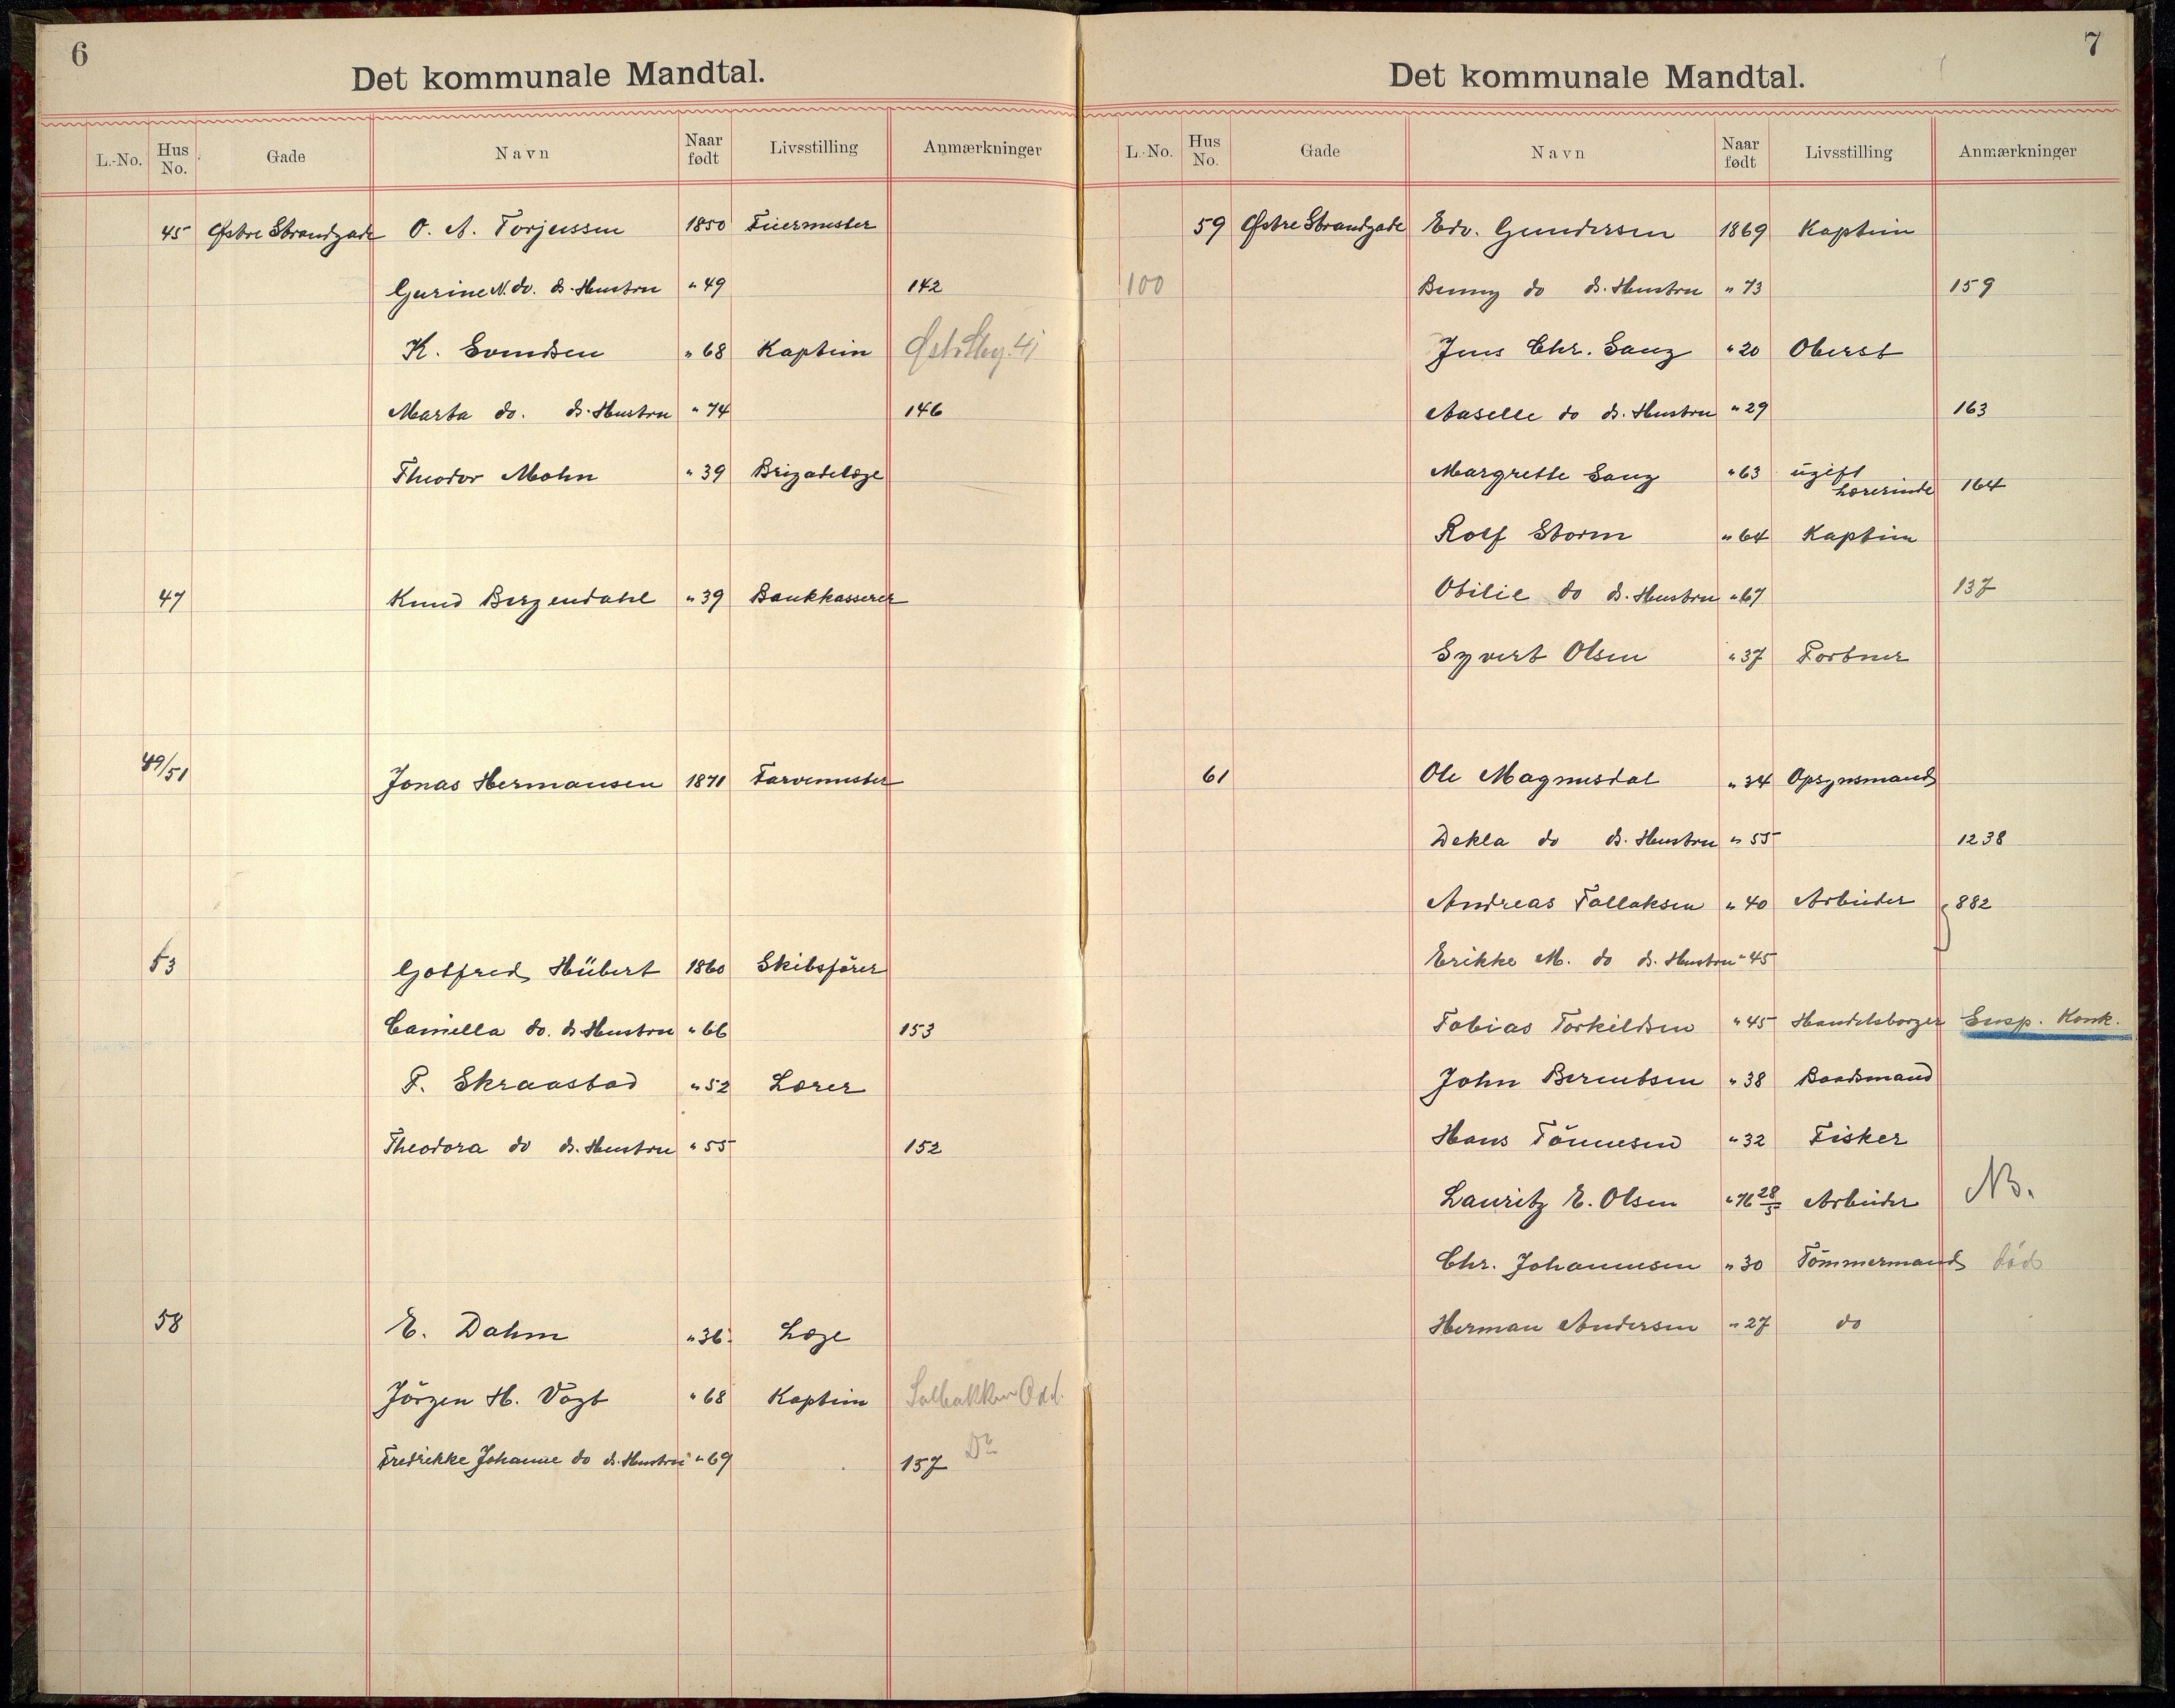 6
Det kommunale Mandtal.
L.-No. Hus No. Gade Navn Naar født Livsstilling Anmærkninger
45 Østre Strandgade O. A. Torjussen 1850 Feiermester
Gurine N. do. ds. Hustru " 49 142
K. Svendsen " 68 Kaptein
Marta do. ds. Hustru " 74 146
Theodor Mohn " 39 Brigadelæge
47 Knud Bergendahl " 39 Bankkasserer
49/51 Jonas Hermansen 1871 Farvemester
53 Gotfred Hübert 1860 Skibsförer
Camella do. ds. Hustru " 66 153
F. Skraastad " 52 Lærer
Theodora do ds. Hustru " 55 152
58 E. Dahm " 36 Læge
Jörgen H. Vogt " 68 Kaptein Solbakken Odd.
Fredrikke Johanne do ds. Hustru " 69 157 Do
7
Det kommunale Mandtal.
L.-No. Hus No. Gade Navn Naar født Livsstilling Anmærkninger
59 Østre Strandgade Edv. Gundersen 1869 Kaptein
100 Benny do ds. Hustru " 73 159
Jens Chr. Sanz " 20 Oberst
Aaselle do ds. Hustru " 29 163
Margrette Sanz " 63 ugift Lærerinde 164
Rolf Storm " 64 Kaptein
Otilie do ds. Hustru " 67 137
Syvert Olsen " 37 Portner
61 Ole Magnusdal " 34 Opsynsmand
Dekla do ds. Hustru " 55 1238
Andreas Tallaksen " 40 Arbeider 882
Erikke M. do ds. Hustru " 45
Tobias Torkildsen " 45 Handelsborger Susp. Konk.
John Berentsen " 38 Baadsmand
Hans Tönnesen " 32 Fisker
Lauritz E. Olsen " 76 28/5 Arbeider NB.
Chr. Johannesen " 30 Tömmermand död
Herman Andersen " 27 do